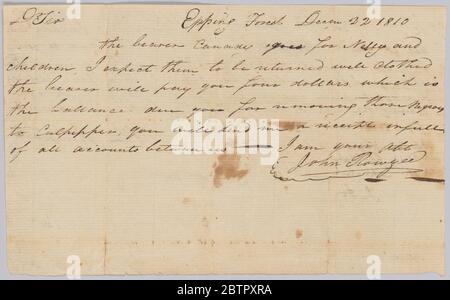 Dr Sir Epping Forest Decem 22 1810
the bearer Canada goes for Nelly and
children I expect them to be returned well clothed
the bearer will pay you four dollars which is
the ballance due you for removing those Negroes
to Culpepper. you will send me a receipt in full
of all accounts between us — I am your obt
John Rowzee
alamy
Image ID: 2BTPXRA
www.alamy.com